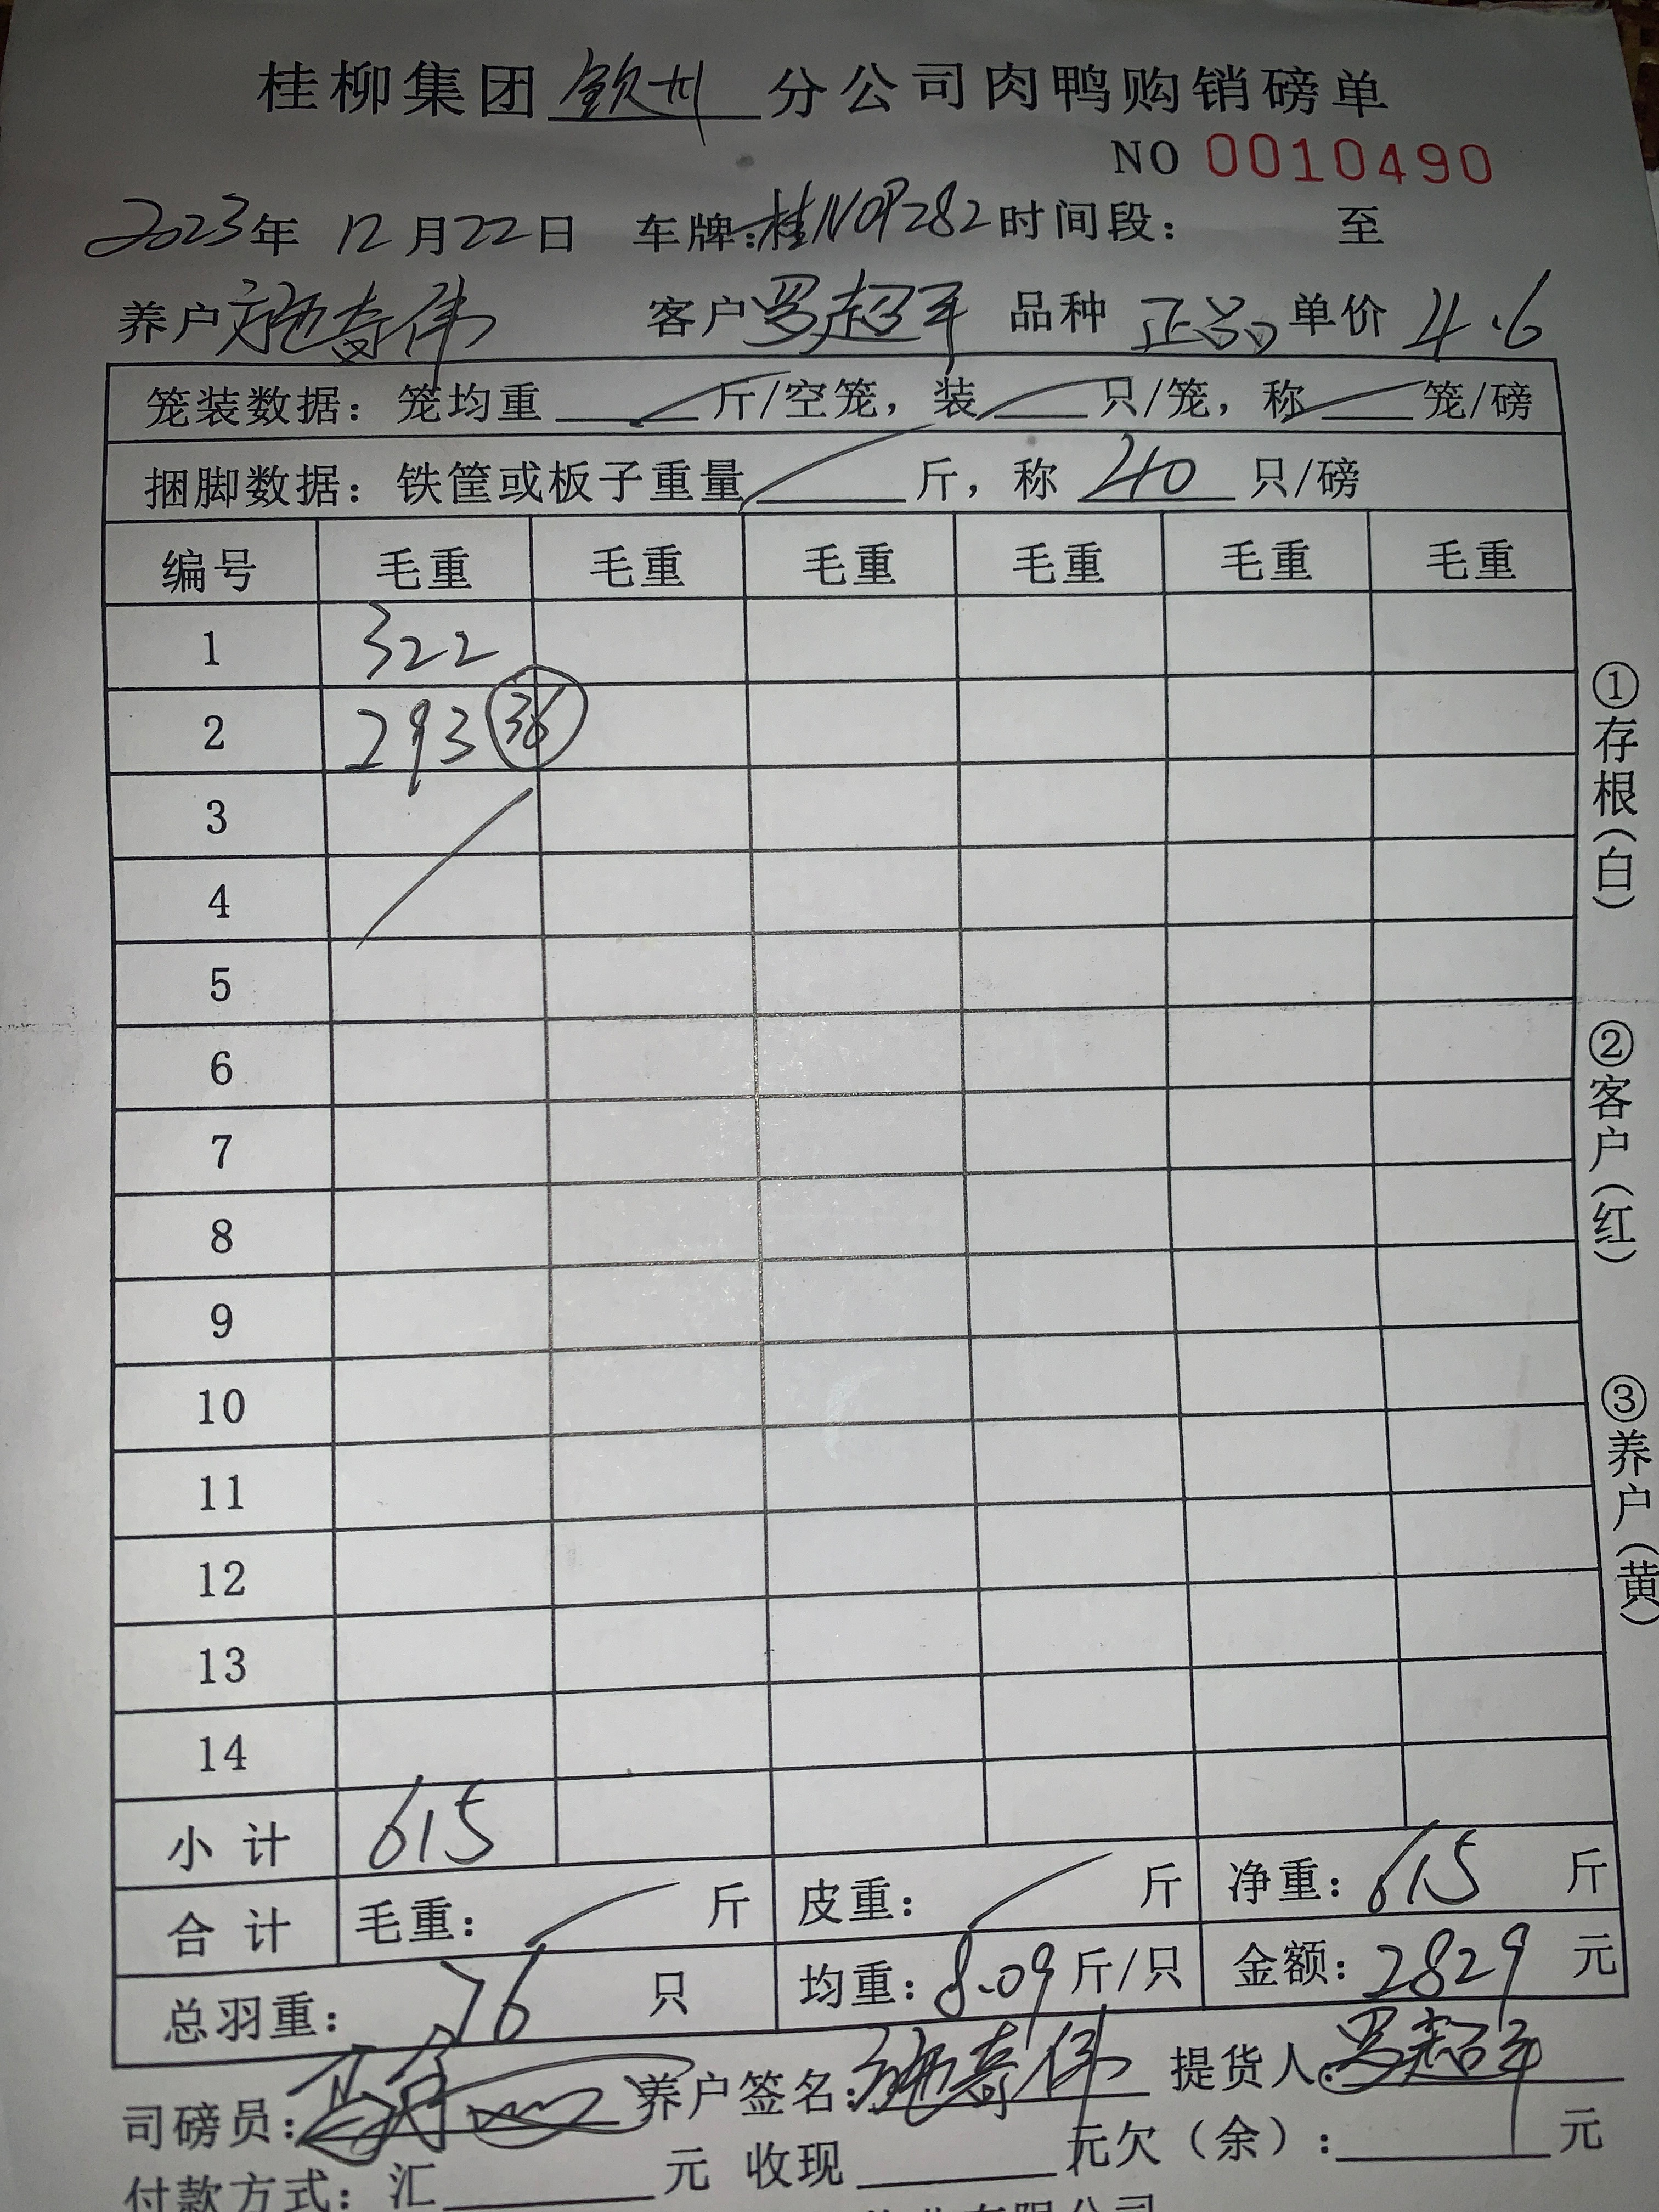 桂柳集团 钦州 分公司肉鸭购销磅单
NO 0010490
2023年 12月22日 车牌:桂N0P282 时间段: 至
养户 施奇伟 客户 罗超平 品种 正品 单价 4.6
笼装数据: 笼均重 斤/空笼, 装 只/笼, 称 笼/磅
捆脚数据: 铁筐或板子重量 斤, 称 40 只/磅
编号 毛重 毛重 毛重 毛重 毛重 毛重
1 322
2 293 36
3
4
5
6
7
8
9
10
11
12
13
14
小计 615
合计 毛重: 斤 皮重: 斤 净重: 615 斤
总羽重: 76 只 均重: 8.09 斤/只 金额: 2829 元
司磅员: 养户签名: 施奇伟 提货人: 罗超平
付款方式: 汇 元 收现 元 欠(余): 元
①存根(白)
②客户(红)
③养户(黄)